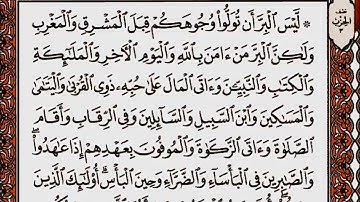 نصف
الحزب
٣
۞ لَّيْسَ ٱلْبِرَّ أَن تُوَلُّوا۟ وُجُوهَكُمْ قِبَلَ ٱلْمَشْرِقِ وَٱلْمَغْرِبِ
وَلَٰكِنَّ ٱلْبِرَّ مَنْ ءَامَنَ بِٱللَّهِ وَٱلْيَوْمِ ٱلْءَاخِرِ وَٱلْمَلَٰٓئِكَةِ
وَٱلْكِتَٰبِ وَٱلنَّبِيِّۦنَ وَءَاتَى ٱلْمَالَ عَلَىٰ حُبِّهِۦ ذَوِى ٱلْقُرْبَىٰ وَٱلْيَتَٰمَىٰ
وَٱلْمَسَٰكِينَ وَٱبْنَ ٱلسَّبِيلِ وَٱلسَّآئِلِينَ وَفِى ٱلرِّقَابِ وَأَقَامَ
ٱلصَّلَوٰةَ وَءَاتَى ٱلزَّكَوٰةَ وَٱلْمُوفُونَ بِعَهْدِهِمْ إِذَا عَٰهَدُوا۟ۖ
وَٱلصَّٰبِرِينَ فِى ٱلْبَأْسَآءِ وَٱلضَّرَّآءِ وَحِينَ ٱلْبَأْسِۗ أُو۟لَٰٓئِكَ ٱلَّذِينَ